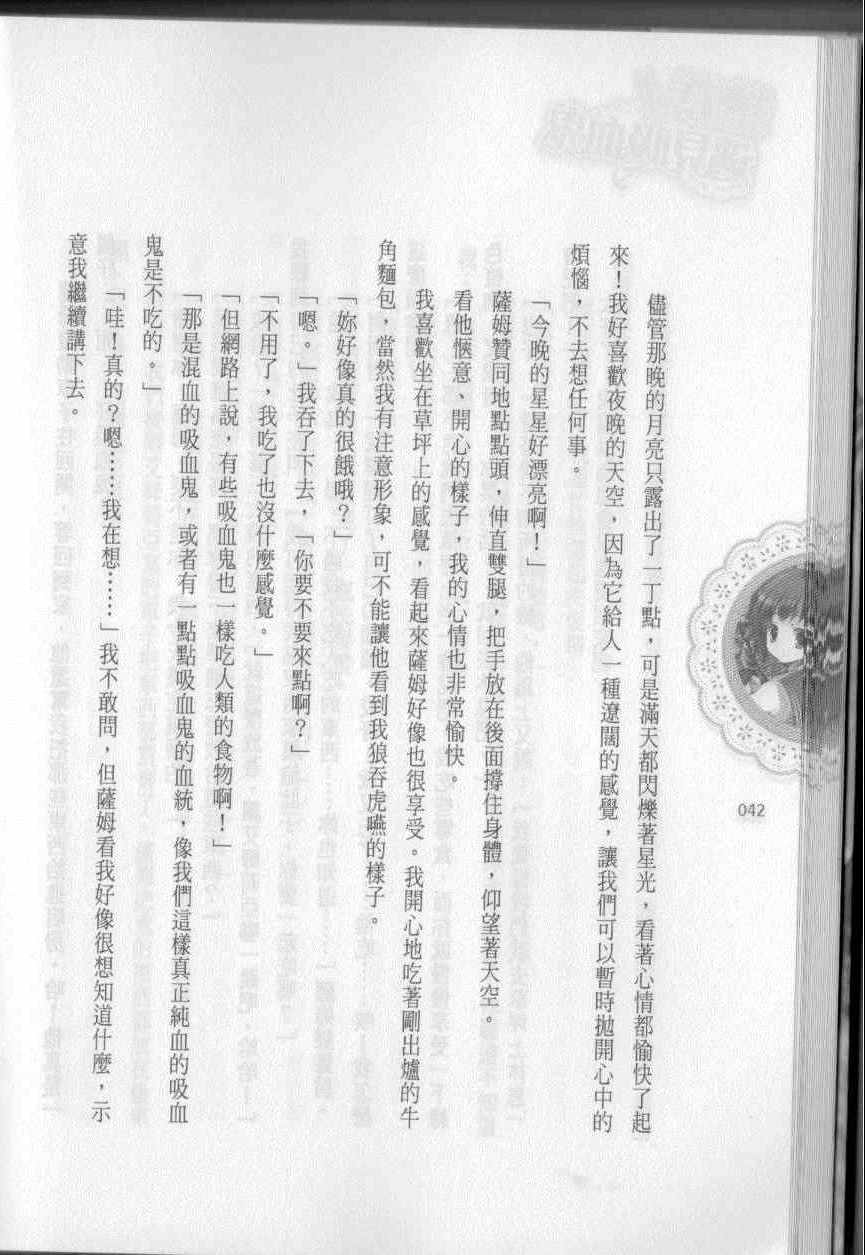 儘管那晚的月亮只露出了一丁點，可是滿天都閃爍著星光，看著心情都愉快了起
來！我好喜歡夜晚的天空，因為它給人一種遼闊的感覺，讓我們可以暫時拋開心中的
煩惱，不去想任何事。
「今晚的星星好漂亮啊！」
薩姆贊同地點點頭，伸直雙腿，把手放在後面撐住身體，仰望著天空。
看他愜意、開心的樣子，我的心情也非常愉快。
我喜歡坐在草坪上的感覺，看起來薩姆好像也很享受。我開心地吃著剛出爐的牛
角麵包，當然我有注意形象，可不能讓他看到我狼吞虎嚥的樣子。
「妳好像真的很餓哦？」
「嗯。」我吞了下去，「你要不要來點啊？」
「不用了，我吃了也沒什麼感覺。」
「但網路上說，有些吸血鬼也一樣吃人類的食物啊！」
「那是混血的吸血鬼，或者有一點點吸血鬼的血統，像我們這樣真正純血的吸血
鬼是不吃的。」
「哇！真的？嗯……我在想……」我不敢問，但薩姆看我好像很想知道什麼，示
意我繼續講下去。
042